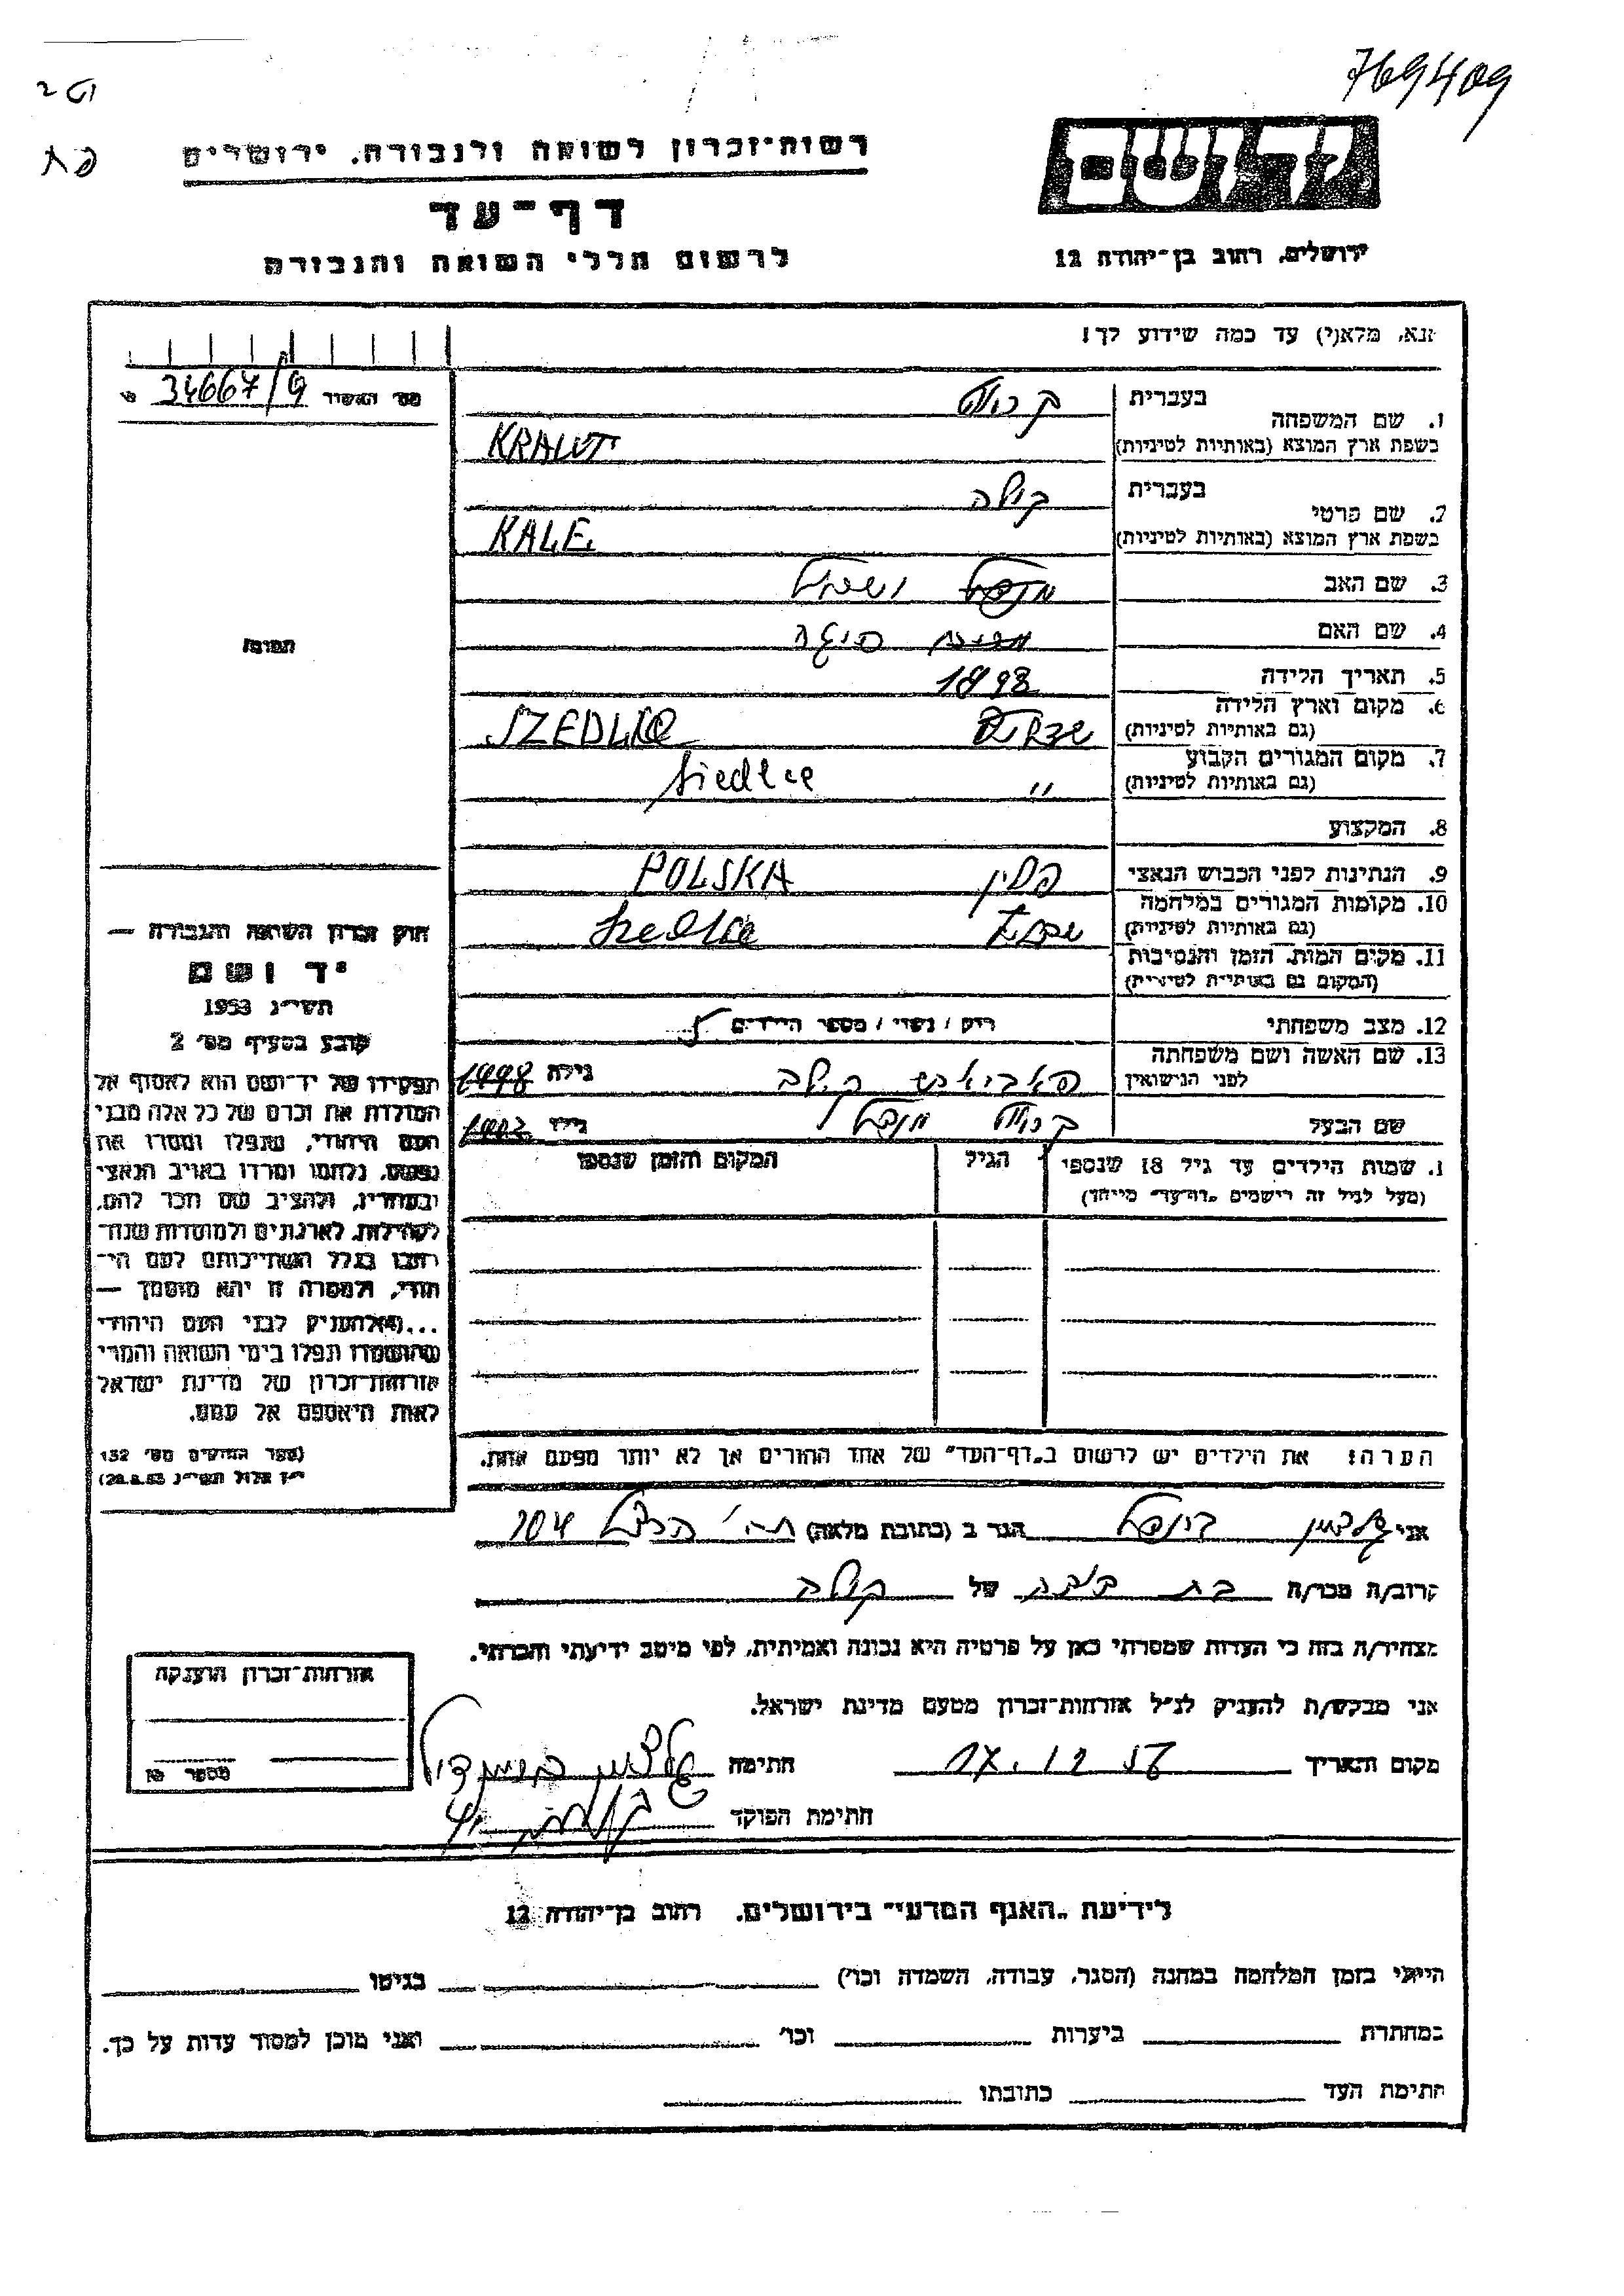 769409
רשות־זכרון לשואה ולגבורה, ירושלים
דף־עד
לרשום חללי השואה והגבורה
יד ושם
ירושלים, רחוב בן־יהודה 12
נא, מלא(י) עד כמה שידוע לך!
מס׳ האשור 34667/9
1. שם המשפחה
בעברית קרוט
בשפת ארץ המוצא (באותיות לטיניות) KRAUT
2. שם פרטי
בעברית קילה
בשפת ארץ המוצא (באותיות לטיניות) KALE
3. שם האב
4. שם האם
5. תאריך הלידה 1898
6. מקום וארץ הלידה
(גם באותיות לטיניות) SZEDLCE
7. מקום המגורים הקבוע
(גם באותיות לטיניות) " Siedlce
8. המקצוע
9. הנתינות לפני הכבוש הנאצי פולין POLSKA
10. מקומות המגורים במלחמה
(גם באותיות לטיניות)
11. מקום המות, הזמן והנסיבות
(המקום גם באותיות לטיניות)
12. מצב משפחתי רוק / נשוי / מספר הילדים 5
13. שם האשה ושם משפחתה
לפני הנישואין קילה גילה 1898
שם הבעל קרוט מנדל גילו
1. שמות הילדים עד גיל 18 שנספו הגיל המקום והזמן שנספו
(מעל לגיל זה רישמים „דף־עד״ מייחד)
הערה: את הילדים יש לרשום ב„דף־העד״ של אחד ההורים אך לא יותר מפעם אחת.
תמונה
חוק זכרון השואה והגבורה —
יד ושם
תשי״ג 1953
קובע בסעיף מס׳ 2
תפקידו של יד־ושם הוא לאסוף אל
המולדת את זכרם של כל אלה מבני
העם היהודי, שנפלו ומסרו את
נפשם, נלחמו ומרדו באויב הנאצי
ובעוזריו, ולהציב שם וזכר להם,
לקהילות, לארגונים ולמוסדות שנח־
רבו בגלל השתייכותם לעם הי־
הודי, ולמטרה זו יהא מוסמך —
...(4) להעניק לבני העם היהודי
שהושמדו ונפלו בימי השואה והמרי
אזרחות־זכרון של מדינת ישראל
לאות היאספם אל עמם.
(ספר החוקים מס׳ 132
י״ז אלול תשי״ג 28.8.53)
אני הגר ב (כתובת מלאה) הרצל 104
קרוב/ה מכר/ה בת דודה של קילה
מצהיר/ה בזה כי העדות שמסרתי כאן על פרטיה היא נכונה ואמיתית, לפי מיטב ידיעתי והכרתי.
אני מבקש/ת להעניק לנ״ל אזרחות־זכרון מטעם מדינת ישראל.
מקום ותאריך 17.12.57 חתימה
חתימת הפוקד
אזרחות־זכרון הוענקה
מספר
לידיעת „האגף המדעי״ בירושלים, רחוב בן־יהודה 12
הייתי בזמן המלחמה במחנה (הסגר, עבודה, השמדה וכו׳) בגיטו
במחתרת ביערות וכו׳ ואני מוכן למסור עדות על כך.
חתימת העד כתובתו